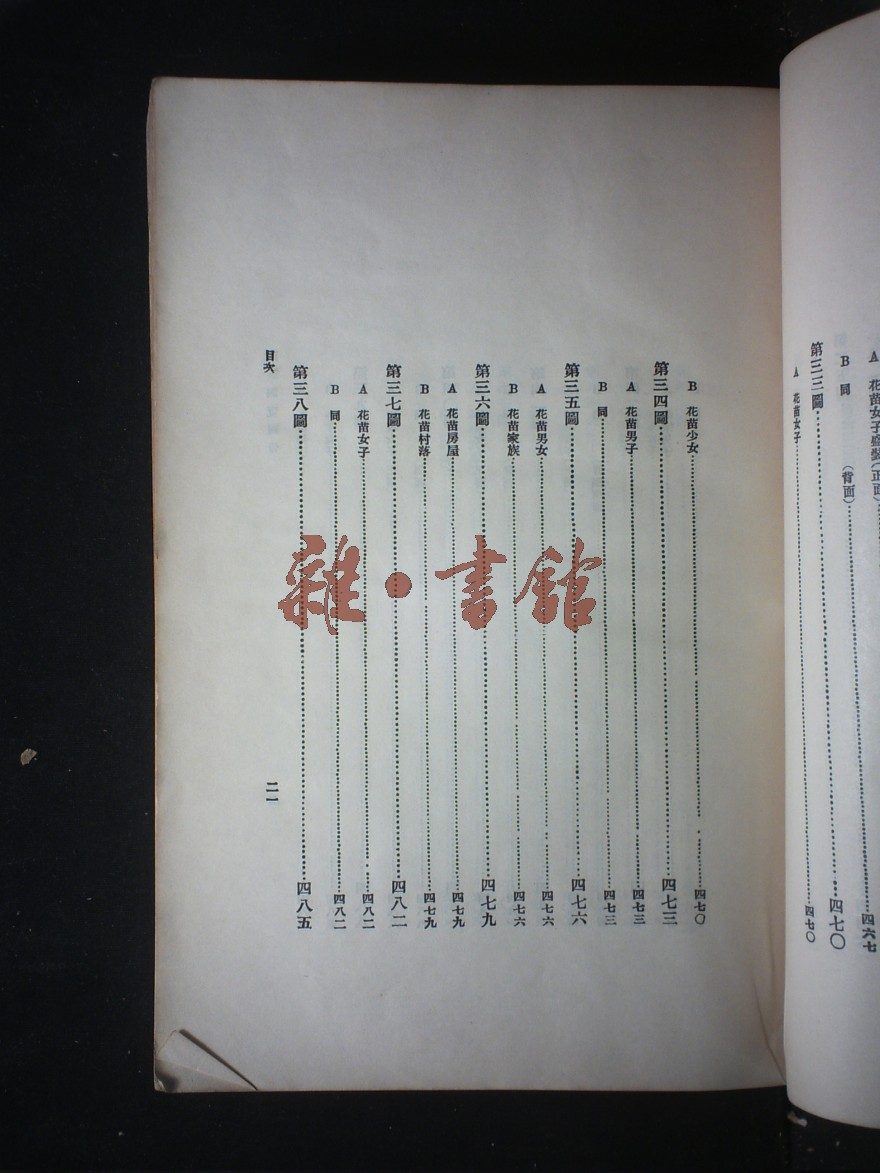 A 花苗女子盛裝(正面)……四六七
B 同 (背面)
第三三圖……四七〇
A 花苗女子……四七〇
B 花苗少女……四七〇
第三四圖……四七三
A 花苗男子……四七三
B 同……四七三
第三五圖……四七六
A 花苗男女……四七六
B 花苗家族……四七六
第三六圖……四七九
A 花苗房屋……四七九
B 花苗村落……四七九
第三七圖……四八二
A 花苗女子……四八二
B 同……四八二
第三八圖……四八五
目次
二一
雜·書館